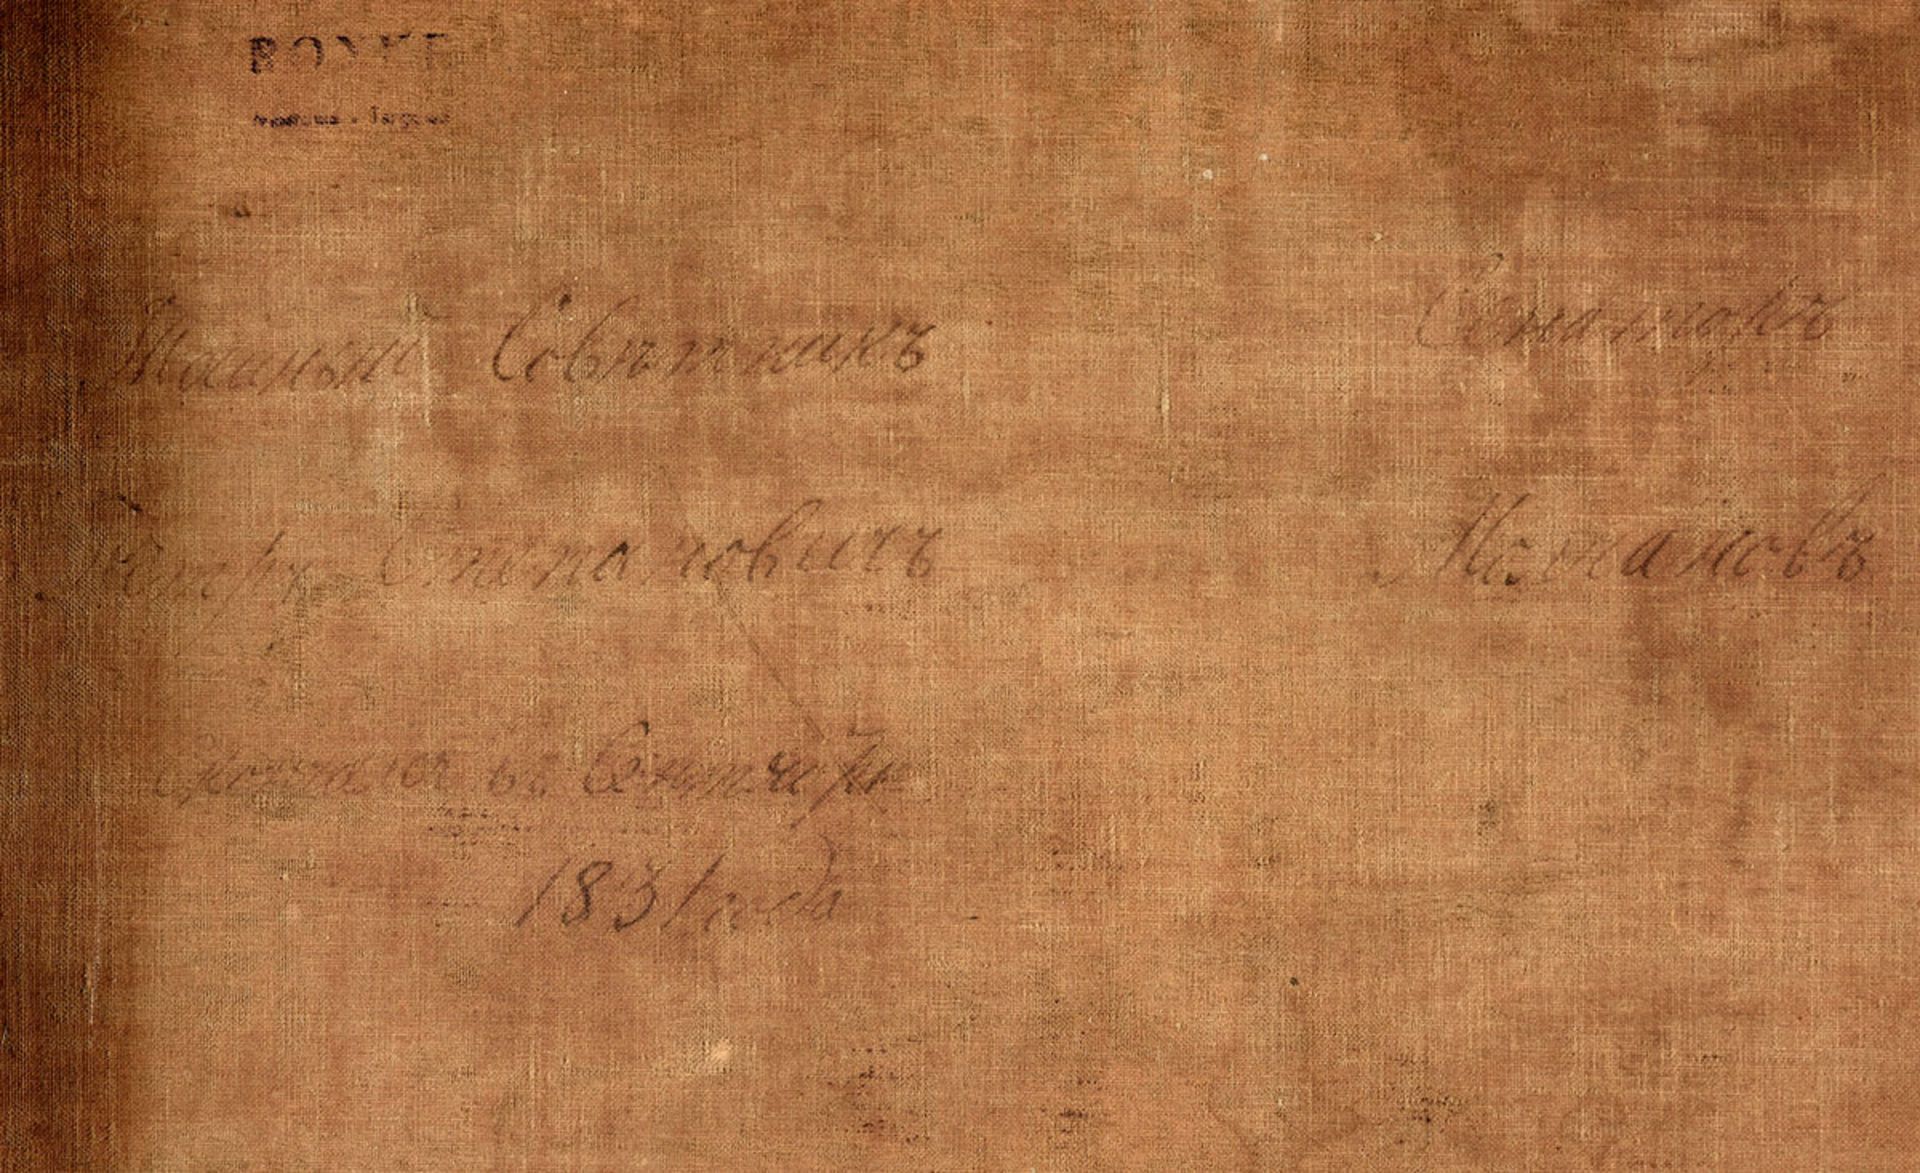 Тайный Совѣтникъ Сенаторъ
Петръ Степановичь Молчановъ
Скончался въ Сентябрѣ
1831 года